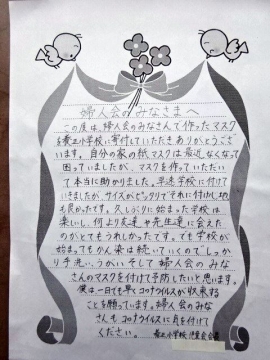 婦人会のみなさまへ
この度は、婦人会のみなさんで作ったマスク
を養正小学校に寄付していただきありがとうござ
います。自分の家の紙マスクは最近なくなって
困っていましたが、マスクを作っていただい
て本当に助かりました。早速学校に付けて
いきましたが、サイズがピッタリでそれに付けやし地
も良かったです。久しぶりに始まった学校は
楽しいし、何より友達や先生達に会えた
のがとてもうれしかったです。でも学校が
始まってもかん染は続いていくのでしっか
り手洗い、うがい、そして婦人会のみな
さんのマスクを付けて予防したいと思います。
僕は一日でも早くコロナウイルスが収束する
ことを願っています。婦人会のみな
さんもコロナウイルスに気を付けて
ください。
小学校 児童会会長